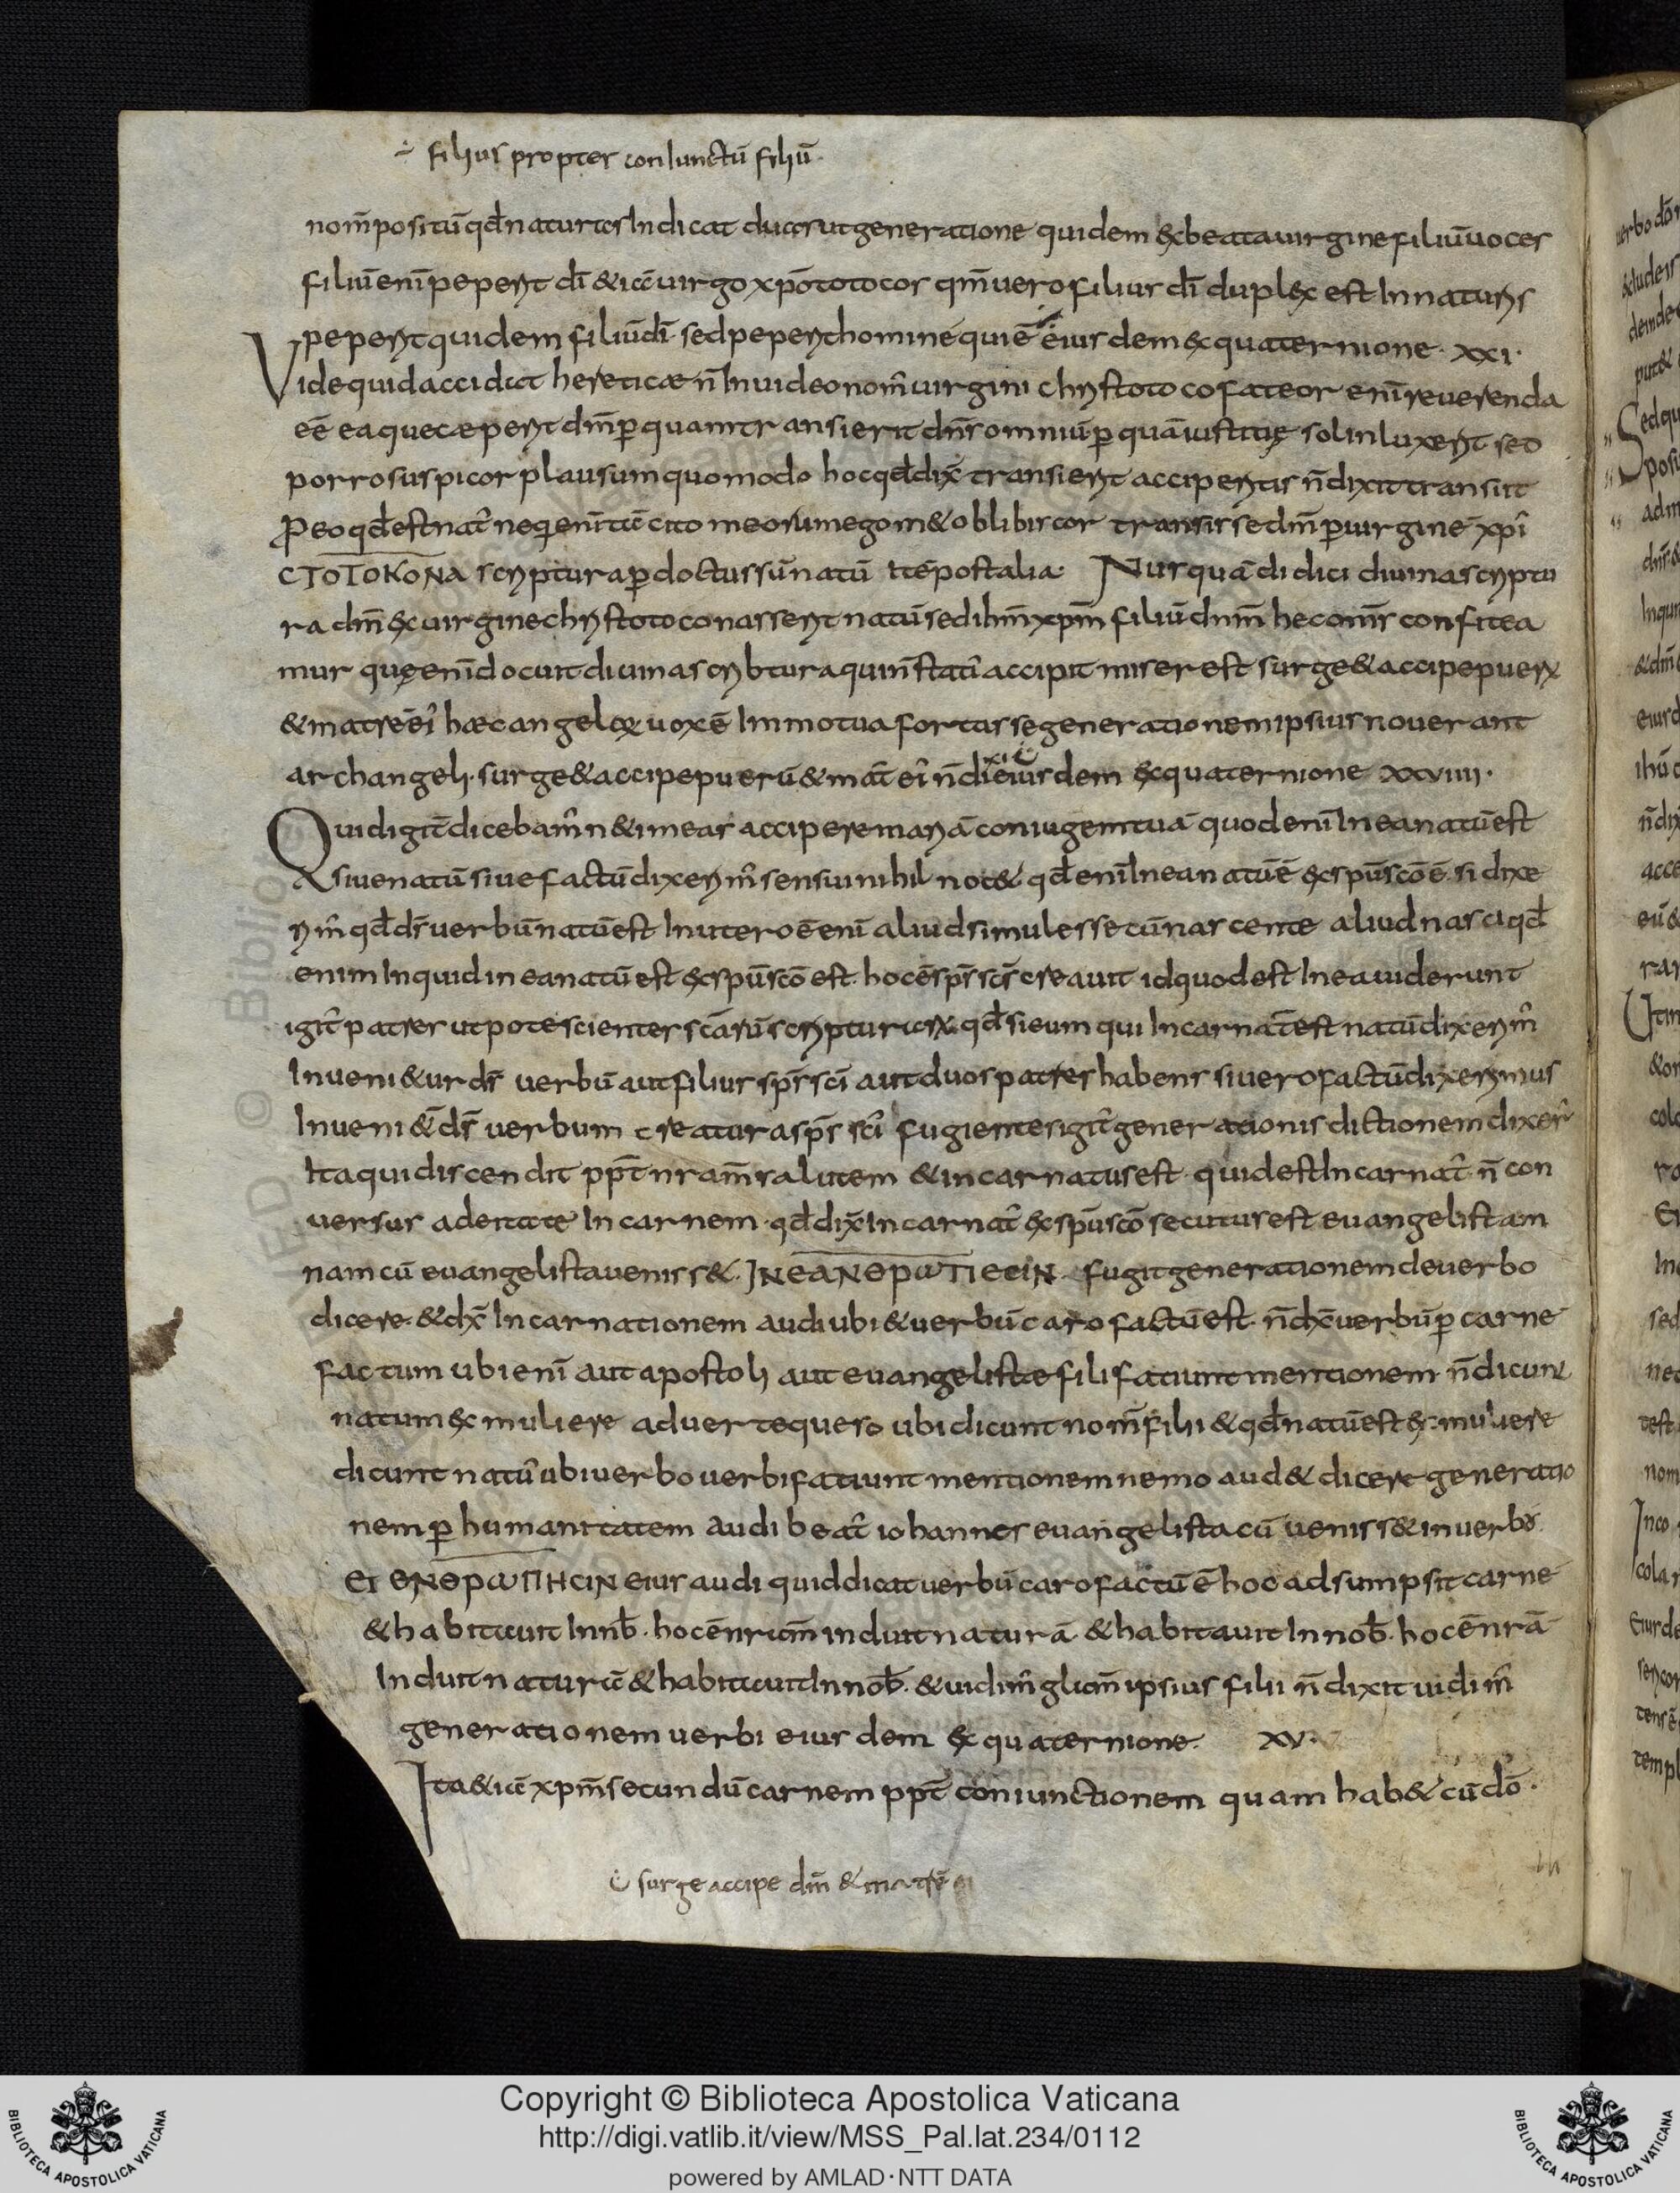 ÷ filius propter coniunctū filiū·
nom̄ positū qđ naturas Indicat duas ut generatione quidem & beata uirgine filiū uoces
filiū enī peperit dī &iā uirgo xpōtotocos qm̄ uero filius dī duplex est In naturis
peperit quidem filiū dī· sed peperit hominē qui ē eiusdem ex quaternione· xxi·
Vide quid accidat hereticæ n̄ Inuideo nom̄ uirgini christotoco fateor enī reuerenda
eē ea que cæperit dm̄ p quam transierit dn̄s omniū p quā iustitię sol Inluxerit sed
porro suspicor plausum quomodo hoc qđ dix̄ transierit acciperitis n̄ dixit transiit
p eo qđ est nat̄ neq; enī tā cito meorum ego m& oblibiscor transisse dm̄ p uirginē xpī
CTOTOKONA scriptura pdoctus sū natū Itē post alia· Nusquā didici diuina scriptu
ra dm̄ ex uirgine christotocon asserit natū sed ihm̄ xpm̄ filiū dnm̄ hec om̄s confitea
mur quę enī docuit diuina scribtura qui n̄ statī accipit miser est surge & accipe puerū
& matrē eī hæc angelorum uox ē Immo tua fortasse generationem ipsius nouerant
archangeli· surge & accipe puerū & mat̄ eī n̄ dixit eiusdem ex quaternione xxviiii·
Quid igit̄ dicebam̄ n& imeas accipere mariā coniugem tuā quod enī In ea natū est
siue natū siue factū dixerim̄ sensui nihil noc& qđ enī In ea natū ē ex spū scō ē· si dixe
rim̄ qđ ds̄ uerbū natū est In utero ē enī aliud simul esse cū nascente aliud nasci qđ
enim Inquid in ea natū est ex spū scō est· hoc ē sps̄ scs̄ creauit id quod est In ea uiderunt
igit̄ patres utpote scientes scārū scripturarum qđ si eum qui Incarnat̄ est natū dixerim̄
Inueni&ur ds̄ uerbū aut filius sps̄ scī aut duos patres habens si uero factū dixerimus
Inueni&̄ ds̄ uerbum creatura sps̄ scī fugientes igit̄ generationis dictionem dixer̄
Ita qui discendit ppt̄ nram̄ salutem & incarnatus est· quid est Incarnat̄· n̄ con
uersus a deitate In carnem· qđ dix̄ Incarnat̄ ex spū scō secutus est euangelistam
nam cū euangelistaueniss&· INEANΘPωΠIECIN· fugit generationem de uerbo
dicere· & dx̄ Incarnationem audi ubi & uerbū caro factū est· n̄ dx̄ uerbū p carnē
factum ubi enī aut apostoli aut euangelistæ fili fatiunt mentionem· n̄ dicunt
natum ex muliere aduerte quero ubi dicunt nom̄ filii & qđ natū est ex muliere
dicunt natū ubi uerbo uerbi fatiunt mentionem nemo aud& dicere generatio
nem p humanitatem audi beat̄ iohannes euangelista cū ueniss& in uerbo·
Et ENΘPωΠHCIN eius audi quid dicat uerbū caro factū ē hoc adsumpsit carnē
& habitauit In nob̄· hoc ē nram̄ induit naturā & habitauit In nob̄· hoc ē nrā
Induit naturā & habitauit In nob̄· & uidim̄ gliam̄ ipsius filii n̄ dixit uidim̄
generationem uerbi eiusdem ex quaternione· xv·
Ita &iā xpm̄ secundū carnem ppt̄ coniunctionem quam hab& cū dō·
surge accipe dm̄ & matrē
Copyright © Biblioteca Apostolica Vaticana
http://digi.vatlib.it/view/MSS_Pal.lat.234/0112
powered by AMLAD·NTT DATA
BIBLIOTECA APOSTOLICA VATICANA
BIBLIOTECA APOSTOLICA VATICANA